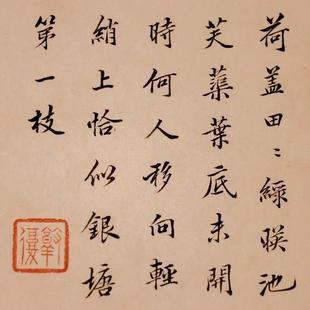 荷盖田〻綠暎池
芙蕖葉底未開
時何人移向輕
綃上恰似銀塘
第一枝